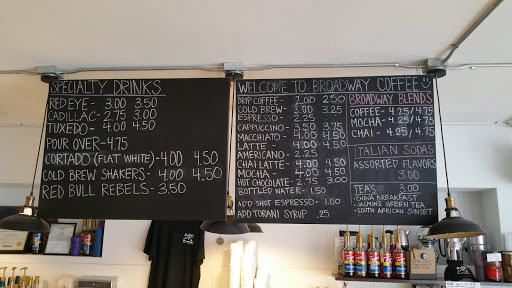 SPECIALTY DRINKS
RED EYE - 3.00 3.50
CADILLAC - 2.75 3.00
TUXEDO - 4.00 4.50
POUR OVER - 4.75
CORTADO (FLAT WHITE) - 4.00 4.50
COLD BREW SHAKERS - 4.00 4.50
RED BULL REBELS - 3.50
WELCOME TO BROADWAY COFFEE
DRIP COFFEE - 2.00 2.50
COLD BREW - 3.00 4.00
ESPRESSO - 2.25
CAPPUCCINO - 3.50 3.75
MACCHIATO - 4.00 4.50
LATTE - 4.00 4.50
AMERICANO - 2.25
CHAI LATTE - 4.00 4.50
MOCHA - 4.00 4.50
HOT CHOCOLATE - 2.75 3.00
BOTTLED WATER - 1.50
ADD SHOT ESPRESSO - 1.00
ADD TORANI SYRUP .25
BROADWAY BLENDS
COFFEE - 4.25/4.75
MOCHA - 4.25/4.75
CHAI - 4.25/4.75
ITALIAN SODAS
ASSORTED FLAVORS
3.00
TEAS 3.00
- CHINA BREAKFAST
- JASMINE GREEN TEA
- SOUTH AFRICAN SUNSET